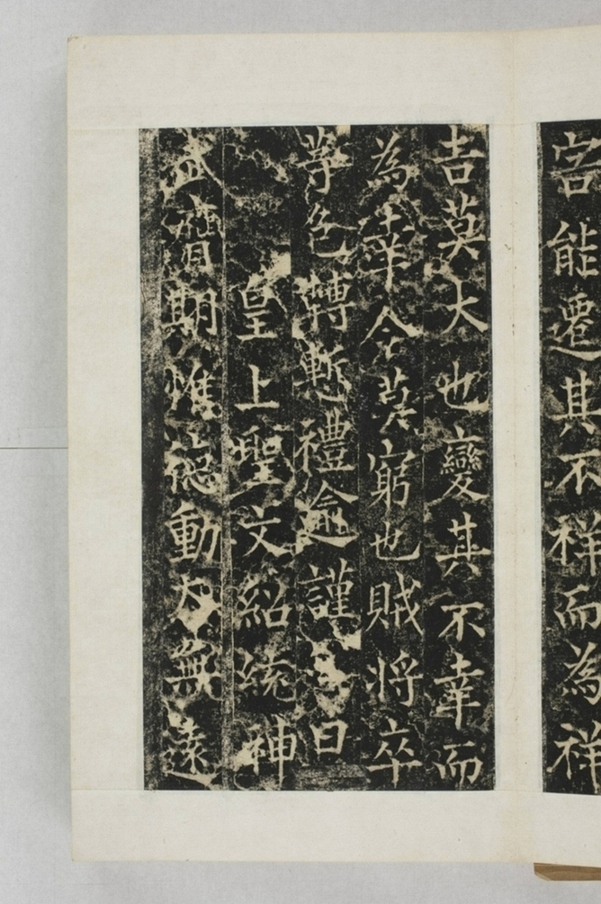 能遷其不祥而為祥
吉莫大也變其不幸而
為幸莫窮也賊將卒
等色轉慙禮逾謹曰
皇上聖文紹統神
武膺期惟德動天無遠